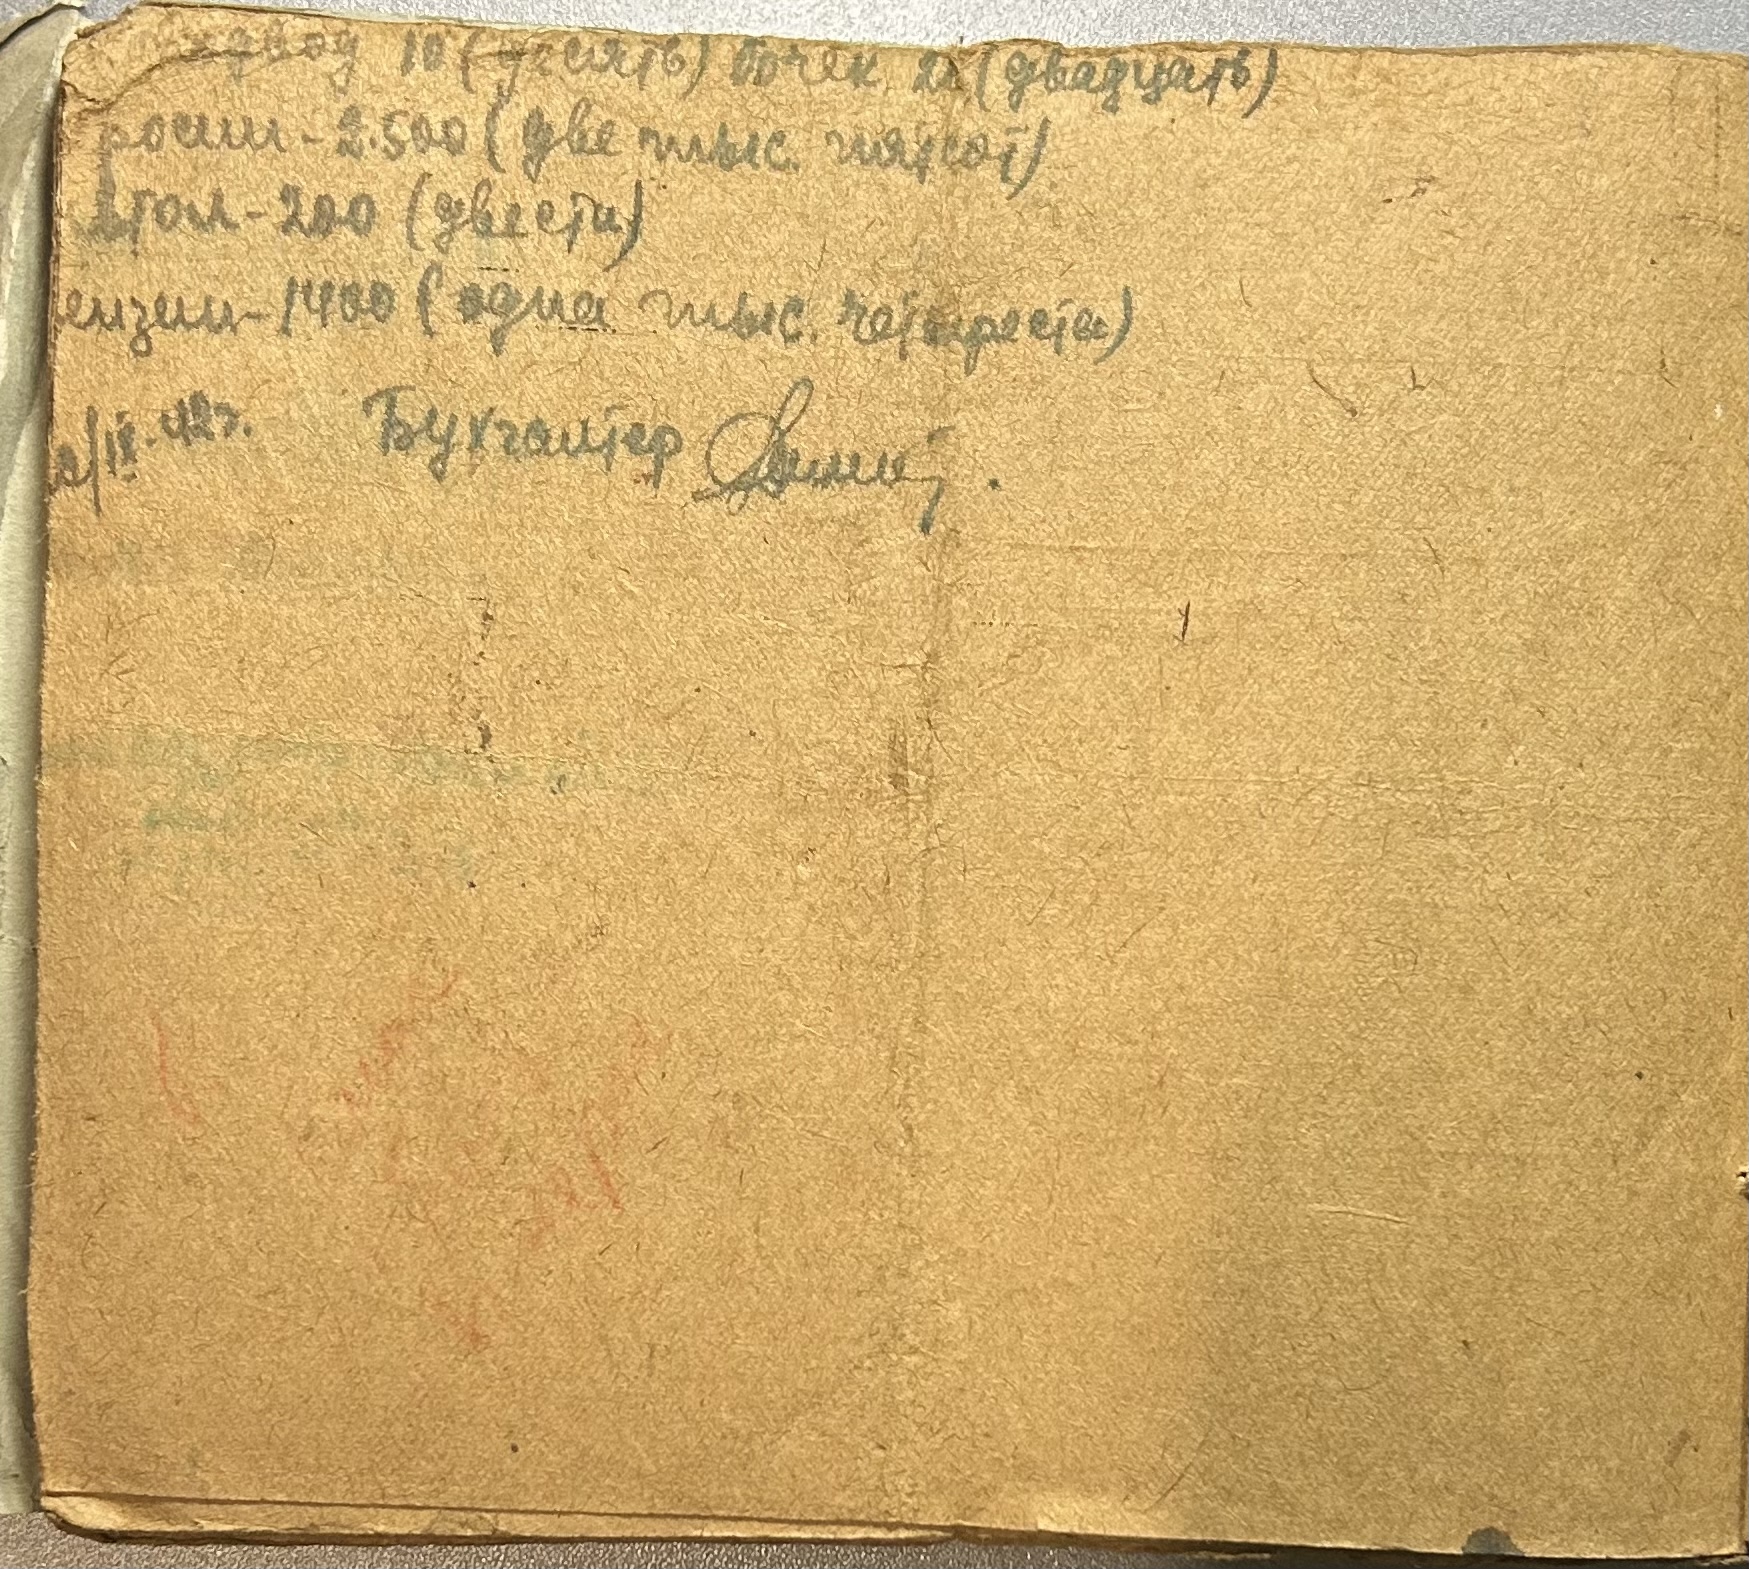 подвод 10 (десять) бочек 20 (двадцать)
росин - 2.500 (две тыс. пятсот)
втол - 200 (двести)
ензин - 1400 (одна тыс. четыреста)
/IV - 42 г. Бухгалтер